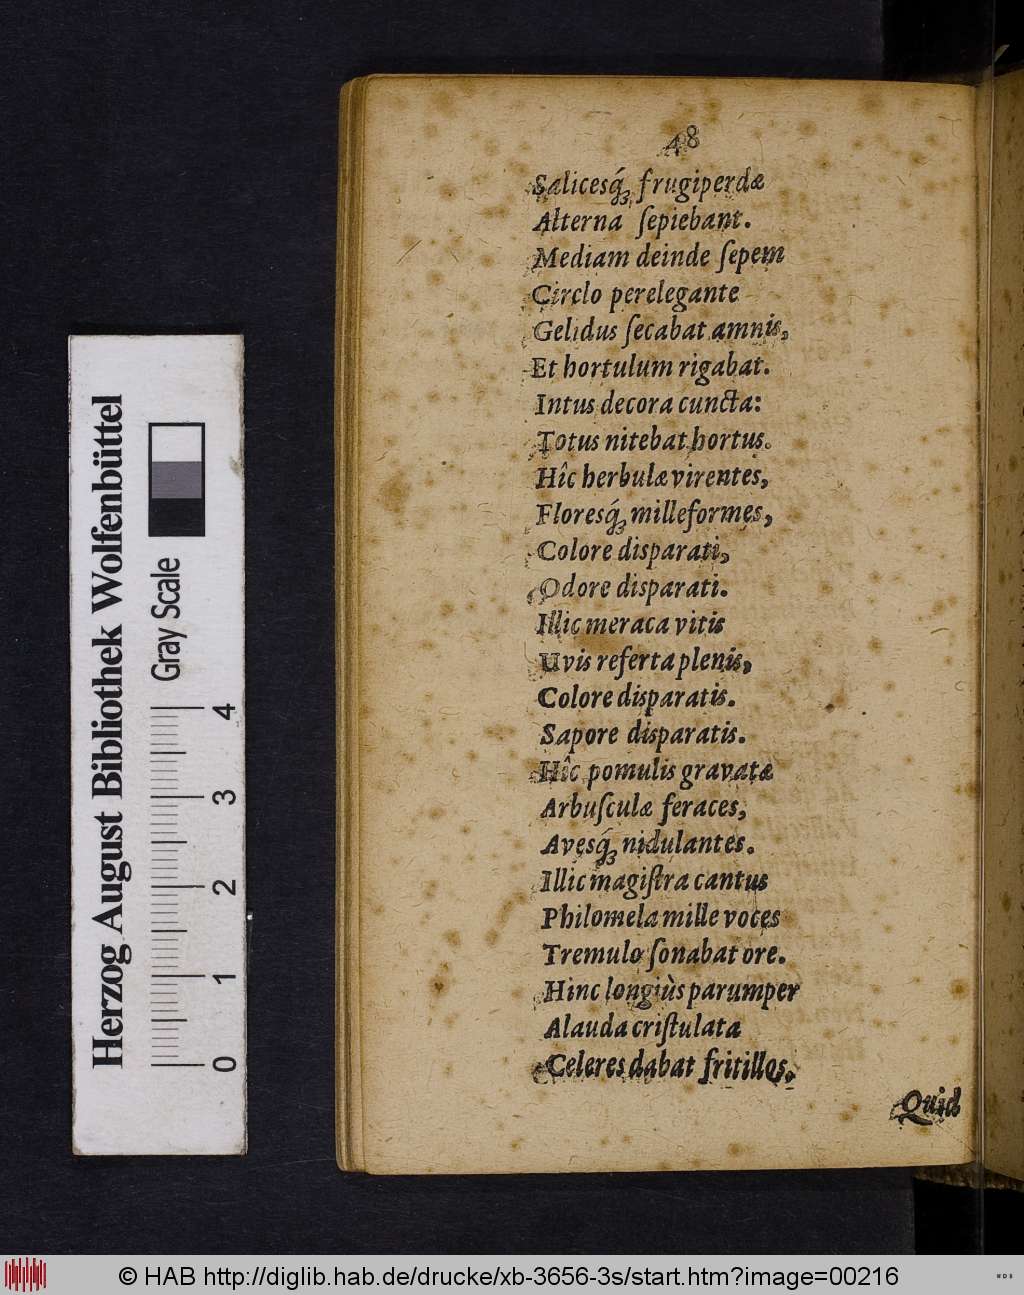 48
Salicesq́ꝫ frugiperdæ
Alterna ſepiebant.
Mediam deinde ſepem
Circlo perelegante
Gelidus ſecabat amnis,
Et hortulum rigabat.
Intus decora cuncta:
Totus nitebat hortus.
Hîc herbulæ virentes,
Floresq́ꝫ milleformes,
Colore disparati,
Odore disparati.
Illic meraca vitis
Uvis referta plenis,
Colore disparatis.
Sapore disparatis.
Hîc pomulis gravatæ
Arbuſculæ feraces,
Avesq́ꝫ nidulantes.
Illic magiſtra cantus
Philomela mille voces
Tremulo ſonabat ore.
Hinc longiùs parumper
Alauda criſtulata
Celeres dabat fritillos.
Quid
Herzog August Bibliothek Wolfenbüttel
Gray Scale
0 1 2 3 4
© HAB http://diglib.hab.de/drucke/xb-3656-3s/start.htm?image=00216